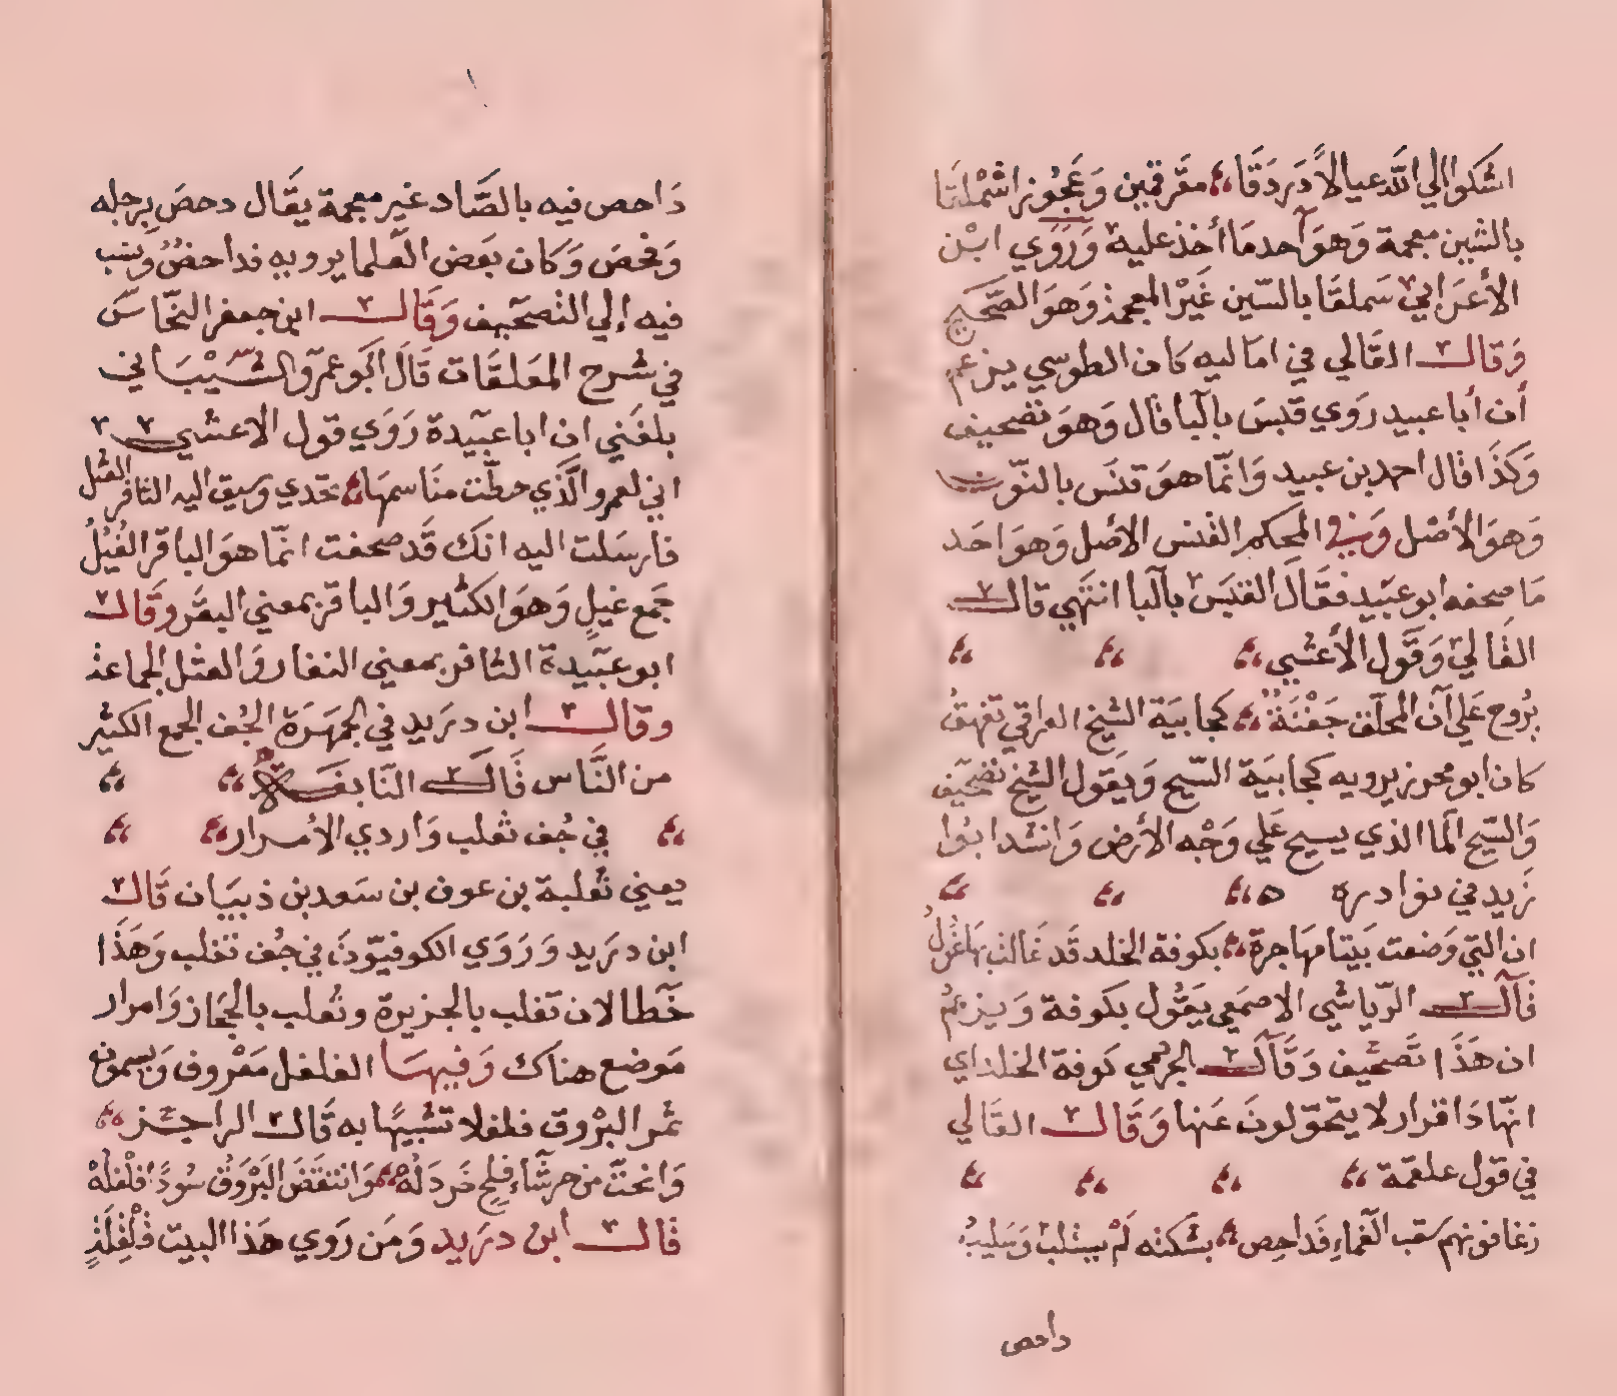 اشكوا الي الله عيالا دردقا مقرقمين وعجوزا شملقا
بالشين معجمة وهو احد ما أخذ عليه وروي ابن
الأعرابي سملقا بالسين غير المعجمة وهو الصحيح
وقال القالي في اماليه كان الطوسي يزعم
أن أبا عبيد روي قبس بالبا قال وهو تصحيف
وكذا قال احمد بن عبيد وانما هو قنس بالنون
وهو الأصل وفي المحكم القنس الأصل وهو احد
ما صحفه ابو عبيد فقال القبس بالبا انتهي قال
القالي وقول الأعشي
يروح علي آل المحلق جفنة كجابية الشيخ العراقي تفهق
كان ابو محرز يرويه كجابية السيح ويقول الشيخ تصحيف
والسيح الما الذي يسيح علي وجه الأرض وانشد ابوا
زيد في نوادره
ان التي وضعت بيتا مهاجرة بكوفة الخلد قد غالت بها غول
قال الرياشي الاصمعي يقول بكوفة ويزعم
ان هذا تصحيف وقال الجرمي كوفة الخلد اي
انها دا قرار لا يتحولون عنها وقال القالي
في قول علقمة
رغا فوقهم سقب السماء فداحص بشكته لم يستلب وسليب
داحص
داحص فيه بالصاد غير معجمة يقال دحص برجله
وفحص وكان بعض العلما يرويه فداحض ونسب
فيه إلي التصحيف وقال ابن جعفر النحاس
في شرح المعلقات قال ابو عمرو الشيباني
بلغني ان ابا عبيدة روي قول الاعشي
اني لعمرو الذي حطت مناسمها تخدي وسيق اليه الثافر العثل
فارسلت اليه انك قد صحفت انما هو الباقر الغيل
جمع غيل وهو الكثير والباقر بمعني البقر وقال
ابو عبيدة الثافر بمعني النفار والعثل الجماعة
وقال ابن دريد في الجمهرة الجف الجمع الكثير
من الناس قال النابغة
في جف ثعلب واردي الأمرار
يعني ثعلبة بن عوف بن سعد بن ذبيان قال
ابن دريد وروي الكوفيون في جف تغلب وهذا
خطا لان تغلب بالجزيرة وثعلب بالحجاز وامرار
موضع هناك وفيها الفلفل معروف ويسمون
ثمر البروق فلفلا تشبيها به قال الراجز
وانحت من حرشاء فلج خردله وانتقض البروق سودا فلفله
قال ابن دريد ومن روي هذا البيت قلقله